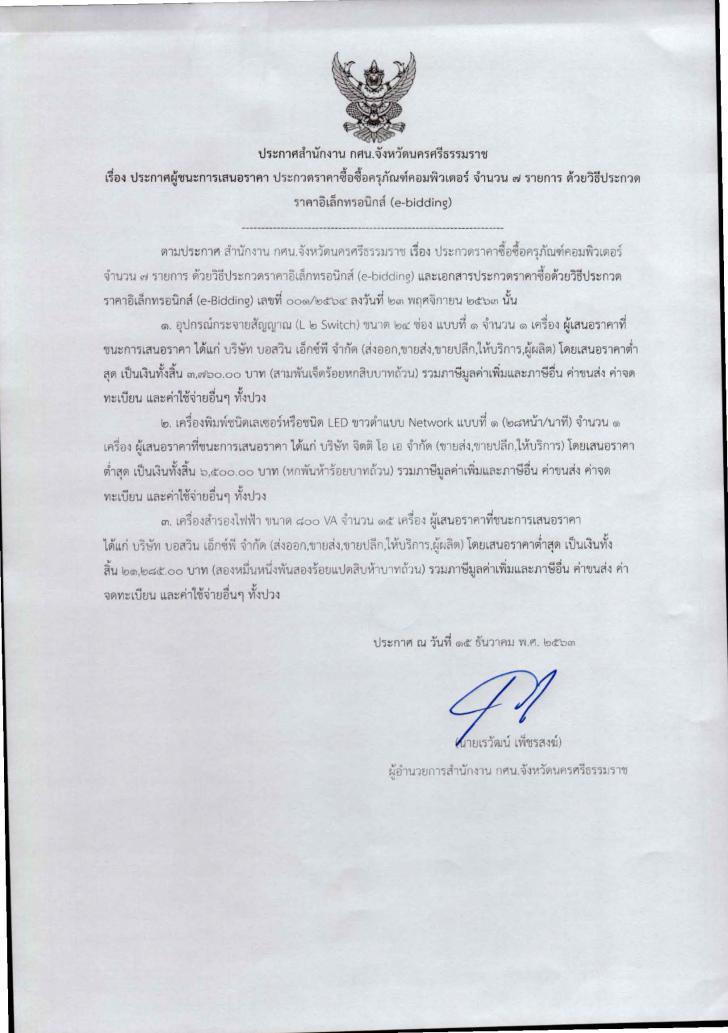 ประกาศสำนักงาน กศน.จังหวัดนครศรีธรรมราช
เรื่อง ประกาศผู้ชนะการเสนอราคา ประกวดราคาซื้อซื้อครุภัณฑ์คอมพิวเตอร์ จำนวน ๗ รายการ ด้วยวิธีประกวด
ราคาอิเล็กทรอนิกส์ (e-bidding)
ตามประกาศ สำนักงาน กศน.จังหวัดนครศรีธรรมราช เรื่อง ประกวดราคาซื้อซื้อครุภัณฑ์คอมพิวเตอร์
จำนวน ๗ รายการ ด้วยวิธีประกวดราคาอิเล็กทรอนิกส์ (e-bidding) และเอกสารประกวดราคาซื้อด้วยวิธีประกวด
ราคาอิเล็กทรอนิกส์ (e-Bidding) เลขที่ ๐๐๑/๒๕๖๔ ลงวันที่ ๒๓ พฤศจิกายน ๒๕๖๓ นั้น
๑. อุปกรณ์กระจายสัญญาณ (L ๒ Switch) ขนาด ๒๔ ช่อง แบบที่ ๑ จำนวน ๑ เครื่อง ผู้เสนอราคาที่
ชนะการเสนอราคา ได้แก่ บริษัท บอสวิน เอ็กซ์พี จำกัด (ส่งออก,ขายส่ง,ขายปลีก,ให้บริการ,ผู้ผลิต) โดยเสนอราคาต่ำ
สุด เป็นเงินทั้งสิ้น ๓,๗๖๐.๐๐ บาท (สามพันเจ็ดร้อยหกสิบบาทถ้วน) รวมภาษีมูลค่าเพิ่มและภาษีอื่น ค่าขนส่ง ค่าจด
ทะเบียน และค่าใช้จ่ายอื่นๆ ทั้งปวง
๒. เครื่องพิมพ์ชนิดเลเซอร์หรือชนิด LED ขาวดำแบบ Network แบบที่ ๑ (๒๘หน้า/นาที) จำนวน ๑
เครื่อง ผู้เสนอราคาที่ชนะการเสนอราคา ได้แก่ บริษัท จิตติ โอ เอ จำกัด (ขายส่ง,ขายปลีก,ให้บริการ) โดยเสนอราคา
ต่ำสุด เป็นเงินทั้งสิ้น ๖,๕๐๐.๐๐ บาท (หกพันห้าร้อยบาทถ้วน) รวมภาษีมูลค่าเพิ่มและภาษีอื่น ค่าขนส่ง ค่าจด
ทะเบียน และค่าใช้จ่ายอื่นๆ ทั้งปวง
๓. เครื่องสำรองไฟฟ้า ขนาด ๘๐๐ VA จำนวน ๑๕ เครื่อง ผู้เสนอราคาที่ชนะการเสนอราคา
ได้แก่ บริษัท บอสวิน เอ็กซ์พี จำกัด (ส่งออก,ขายส่ง,ขายปลีก,ให้บริการ,ผู้ผลิต) โดยเสนอราคาต่ำสุด เป็นเงินทั้ง
สิ้น ๒๑,๒๘๕.๐๐ บาท (สองหมื่นหนึ่งพันสองร้อยแปดสิบห้าบาทถ้วน) รวมภาษีมูลค่าเพิ่มและภาษีอื่น ค่าขนส่ง ค่า
จดทะเบียน และค่าใช้จ่ายอื่นๆ ทั้งปวง
ประกาศ ณ วันที่ ๑๕ ธันวาคม พ.ศ. ๒๕๖๓
(นายเรวัฒน์ เพ็ชรสงฆ์)
ผู้อำนวยการสำนักงาน กศน.จังหวัดนครศรีธรรมราช